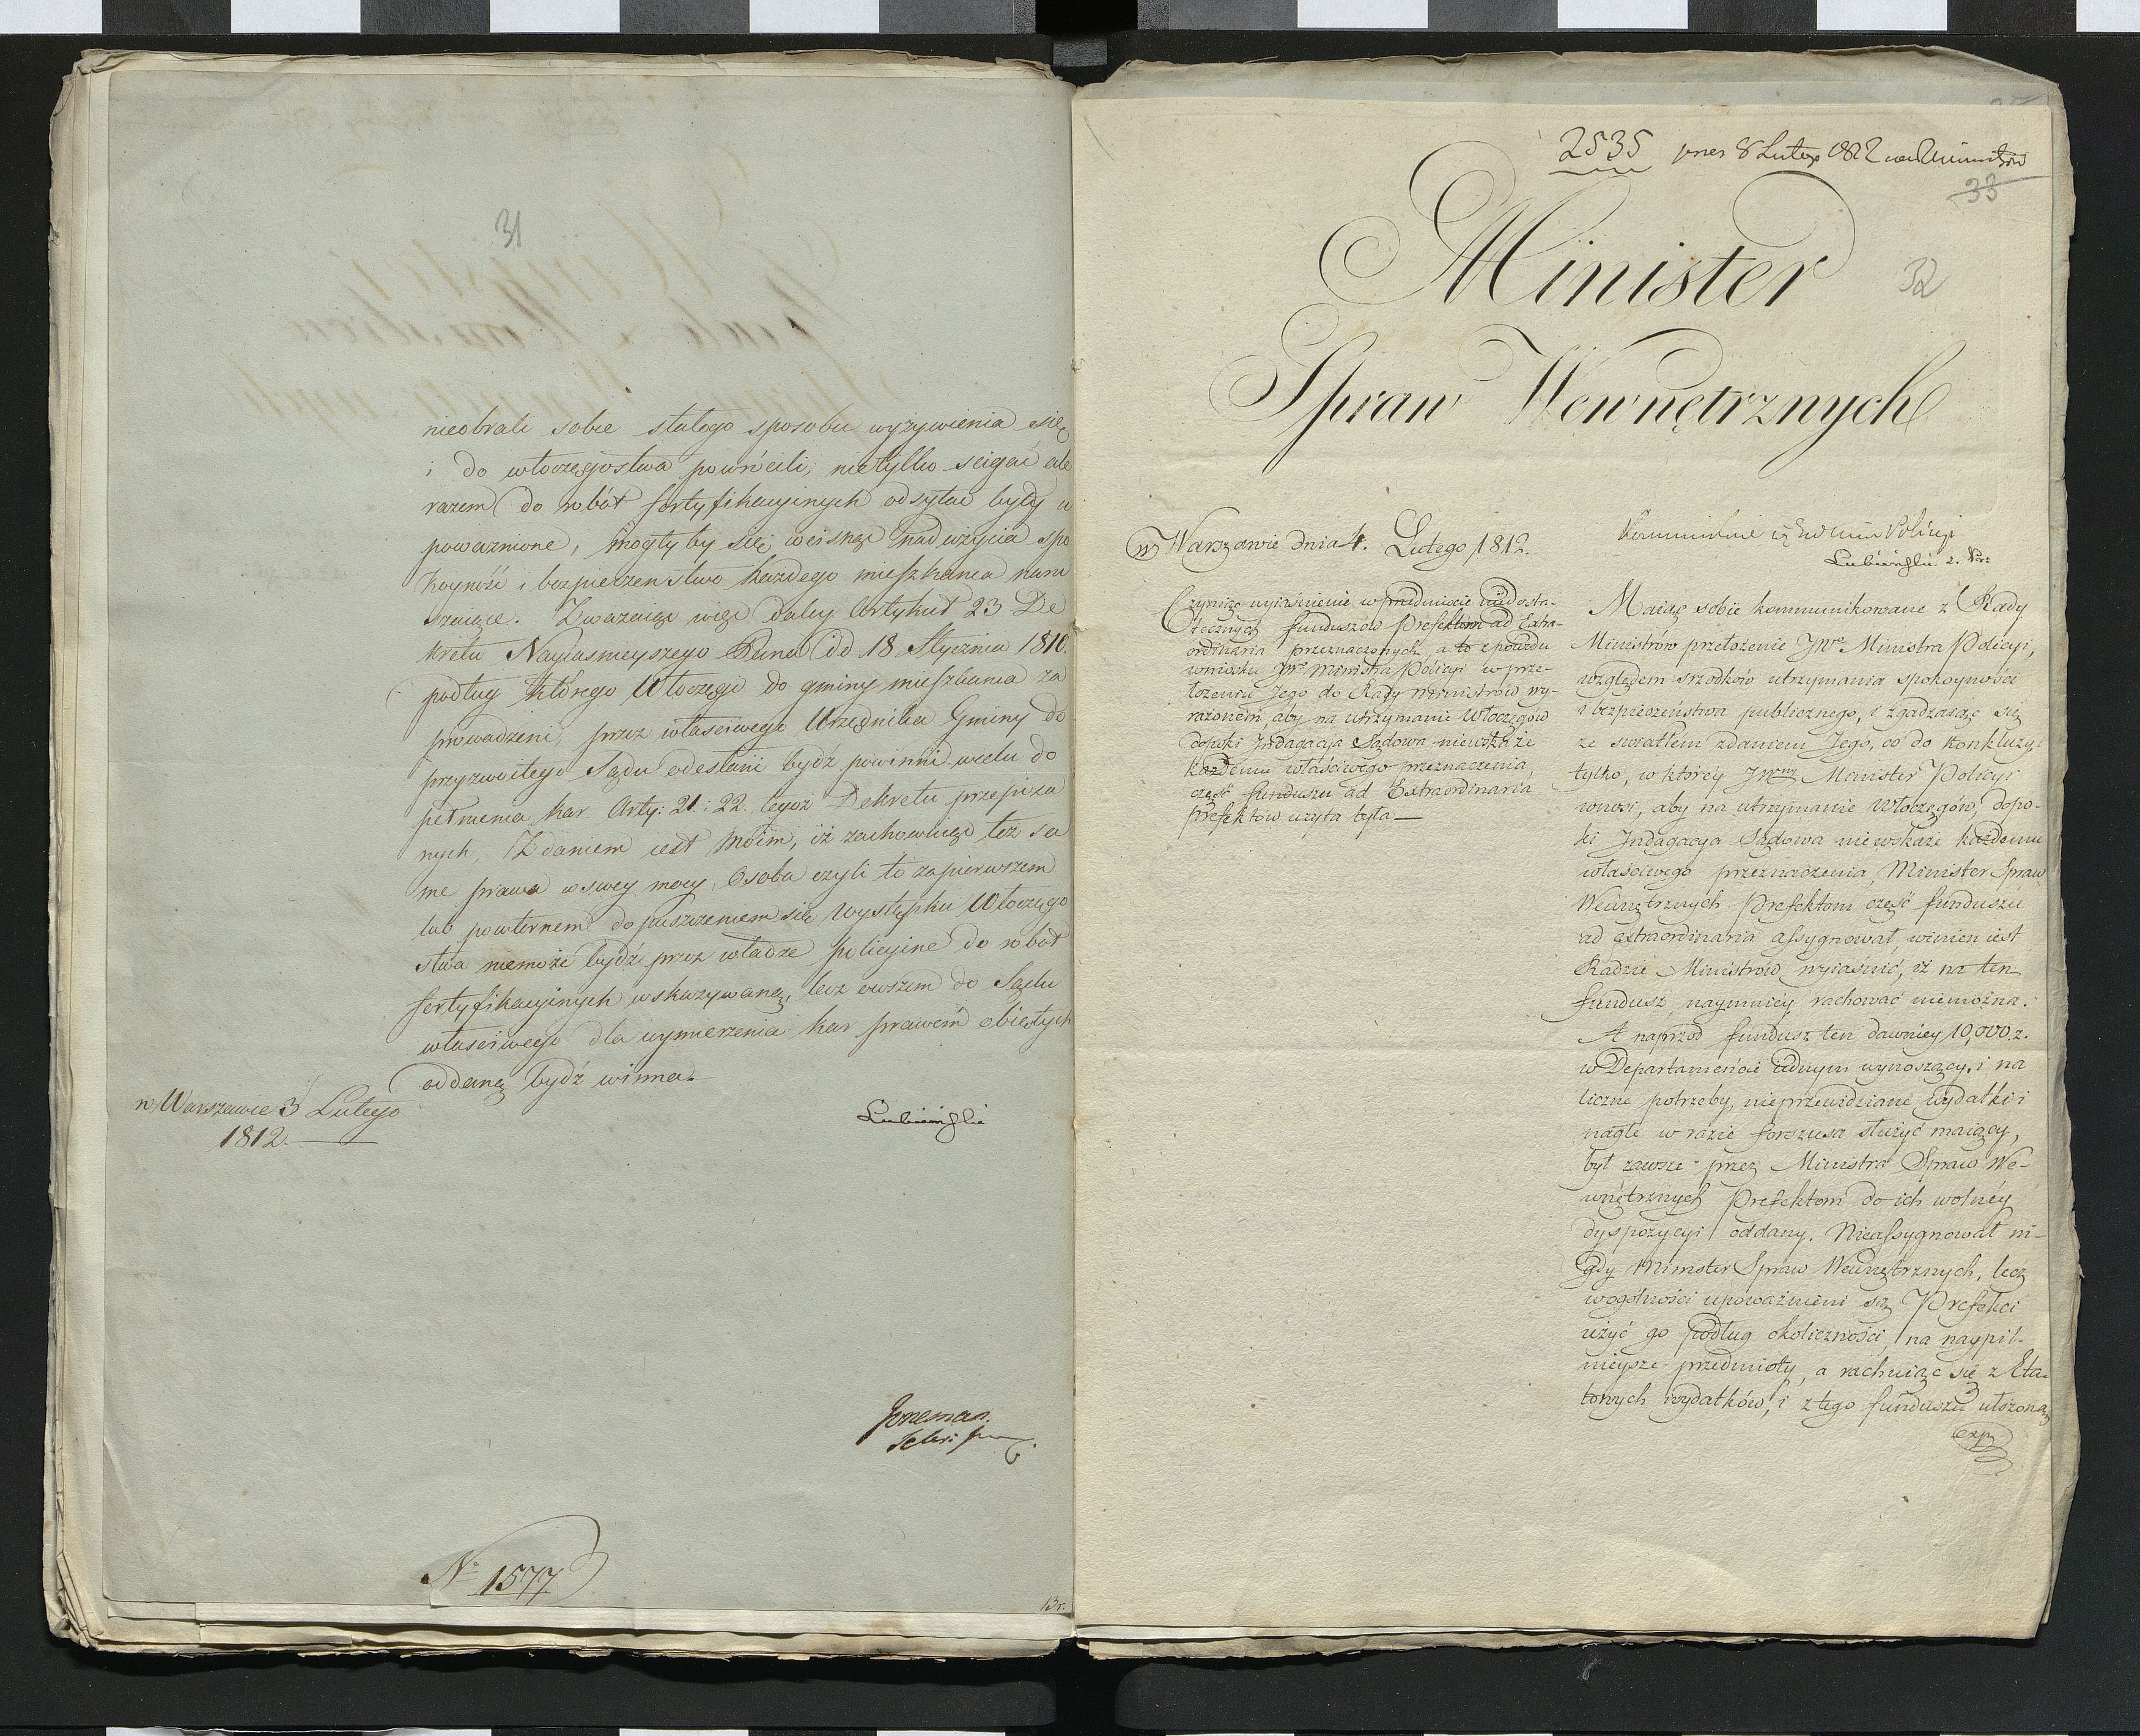 31
nieobrali sobie stałego sposobu wyżywienia się
i do włoczęgostwa powrócili, nietylko scigać ale
razem do robót fortyfikacyinych odsyłać były u
poważnione, mogłyby się wcisnąć nadużycia spo
koyność i bezpieczenstwo każdego mieszkańca naru
szaiące. Zważaiąc więc daley Artykuł 23 De
kretu Nayiasnieyszego Pana dd 18 Stycznia 1810.
podług którego Włoczęgi do gminy mieszkania za
prowadzeni, przez własciwego Urzędnika Gminy do
przyzwoitego Sądu odesłani bydź powinni wcelu do
pełnienia kar Arty: 21: 22. tegoż Dekretu przepisa
nych, Zdaniem iest Moim, iż zachowuiąc też sa
me prawa w swey mocy, Osoba czyli to zapierwszem
lub powtornem dopuszczeniem się Występku Włoczęgo
stwa niemoże bydź przez władze policyine do robót
fortyfikacyinych wskazywaną, lecz owszem do Sądu
własciwego dla wymierzenia kar prawem obiętych
oddaną bydź winna.
w Warszawie 3 Lutego
1812.
Lubieński
No 1577
13r.
2535 pres 8 Lutego 1812
33
Minister
32
Spraw Wewnętrznych
w Warszawie dnia 4. Lutego 1812.
Policyi
Lubieński
Czyniąc wyiaśnienie w przedmiocie niedosta-
tecznych funduszów Prefektom ad Extra-
ordinaria przeznaczonych a to z powodu
wniosku JWo Ministra Policyi w prze-
łożeniu Jego do Rady Ministrów wy-
rażonem, aby na utrzymanie Włoczęgów
dopoki Indagacya Sądowa niewskaże
każdemu właściwego przeznaczenia,
część funduszu ad Extraordinaria
Prefektow użyta była
Maiąc sobie kommunikowane z Rady
Ministrów przełożenie JWo Ministra Policyi,
względem srzodków utrzymania spokoyności
i bezpieczeństwa publicznego, i zgadzaiąc się
ze swiatłem zdaniem Jego, co do Konkluzyi
tylko, w którey JWny Minister Policyi
wnosi, aby na utrzymanie Włoczęgów, dopo-
ki Indagacya Sądowa niewskaże każdemu
właściwego przeznaczenia, Minister Spraw
Wewnętrznych Prefektom część funduszu
ad extraordinaria assygnował, winien iest
Radzie Ministrów wyiaśnić, iż na ten
fundusz, naymniey rachować niemożna.
A naprzód fundusz ten dawniey 10,000. z.
w Departamencie iednym wynoszący, i na
liczne potrzeby, nieprzewidziane wydatki i
nagłe w razie forszusa służyć maiący,
był zawsze przez Ministra Spraw We-
wnętrznych Prefektom do ich wolney
dyspozycyi oddany. Nieassygnował ni-
gdy Minister Spraw Wewnętrznych, lecz
wogólności upoważnieni są Prefekci
użyć go podług okoliczności, na naypil-
nieysze przedmioty, a rachuiąc się z Eta-
towych wydatków, i z tego funduszu ułożoną